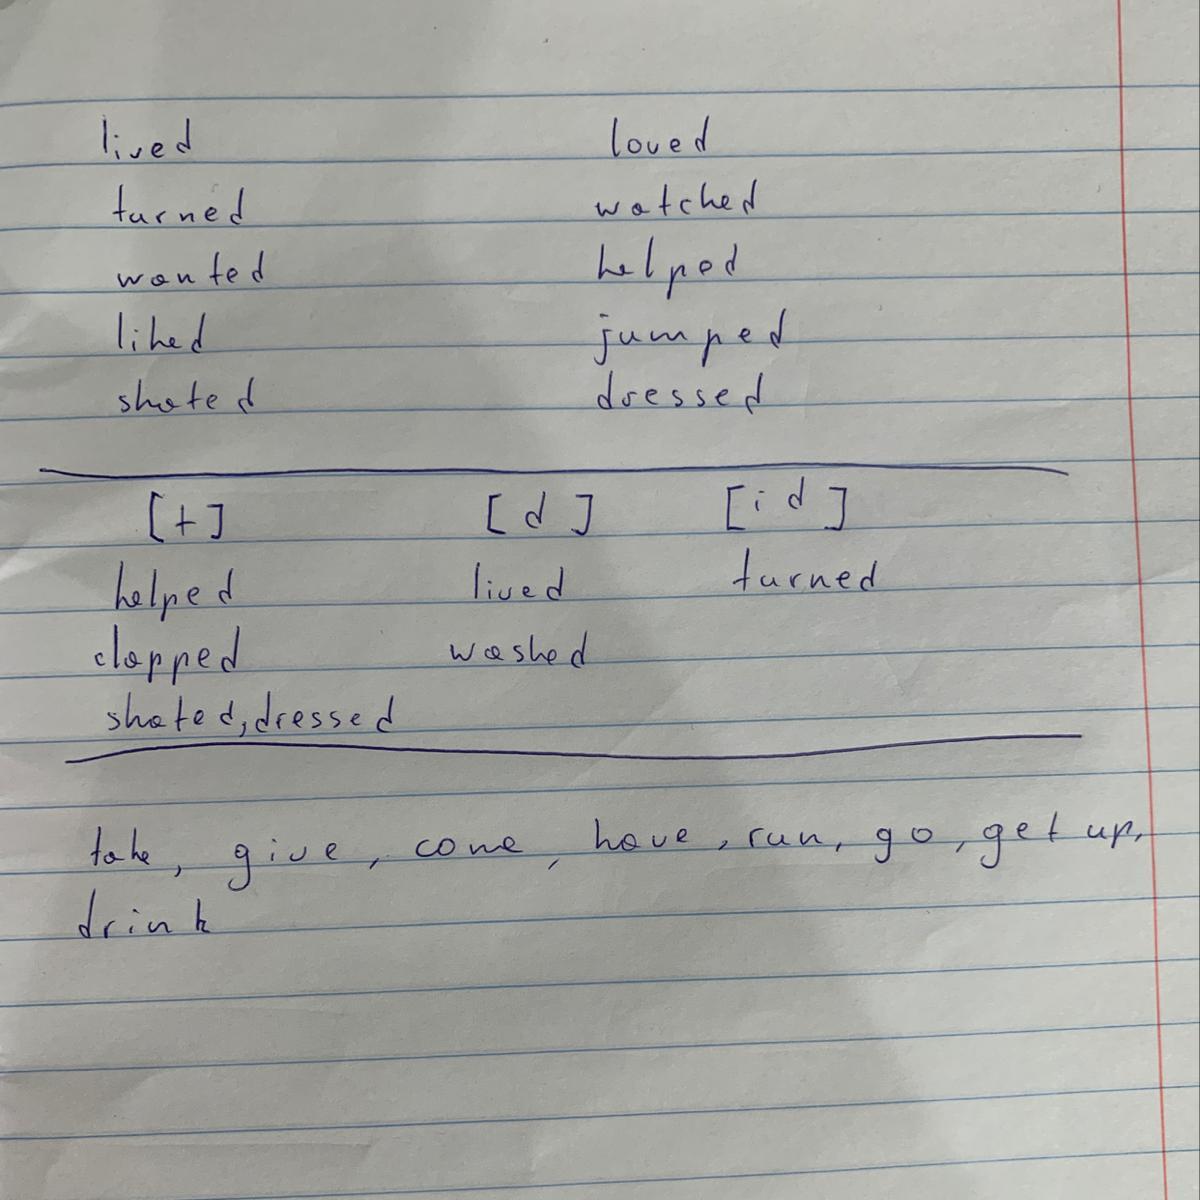 lived loved
turned watched
wanted helped
liked jumped
skated dressed
[t] [d] [id]
helped lived turned
clapped washed
skated, dressed
take, give, come, have, run, go, get up,
drink